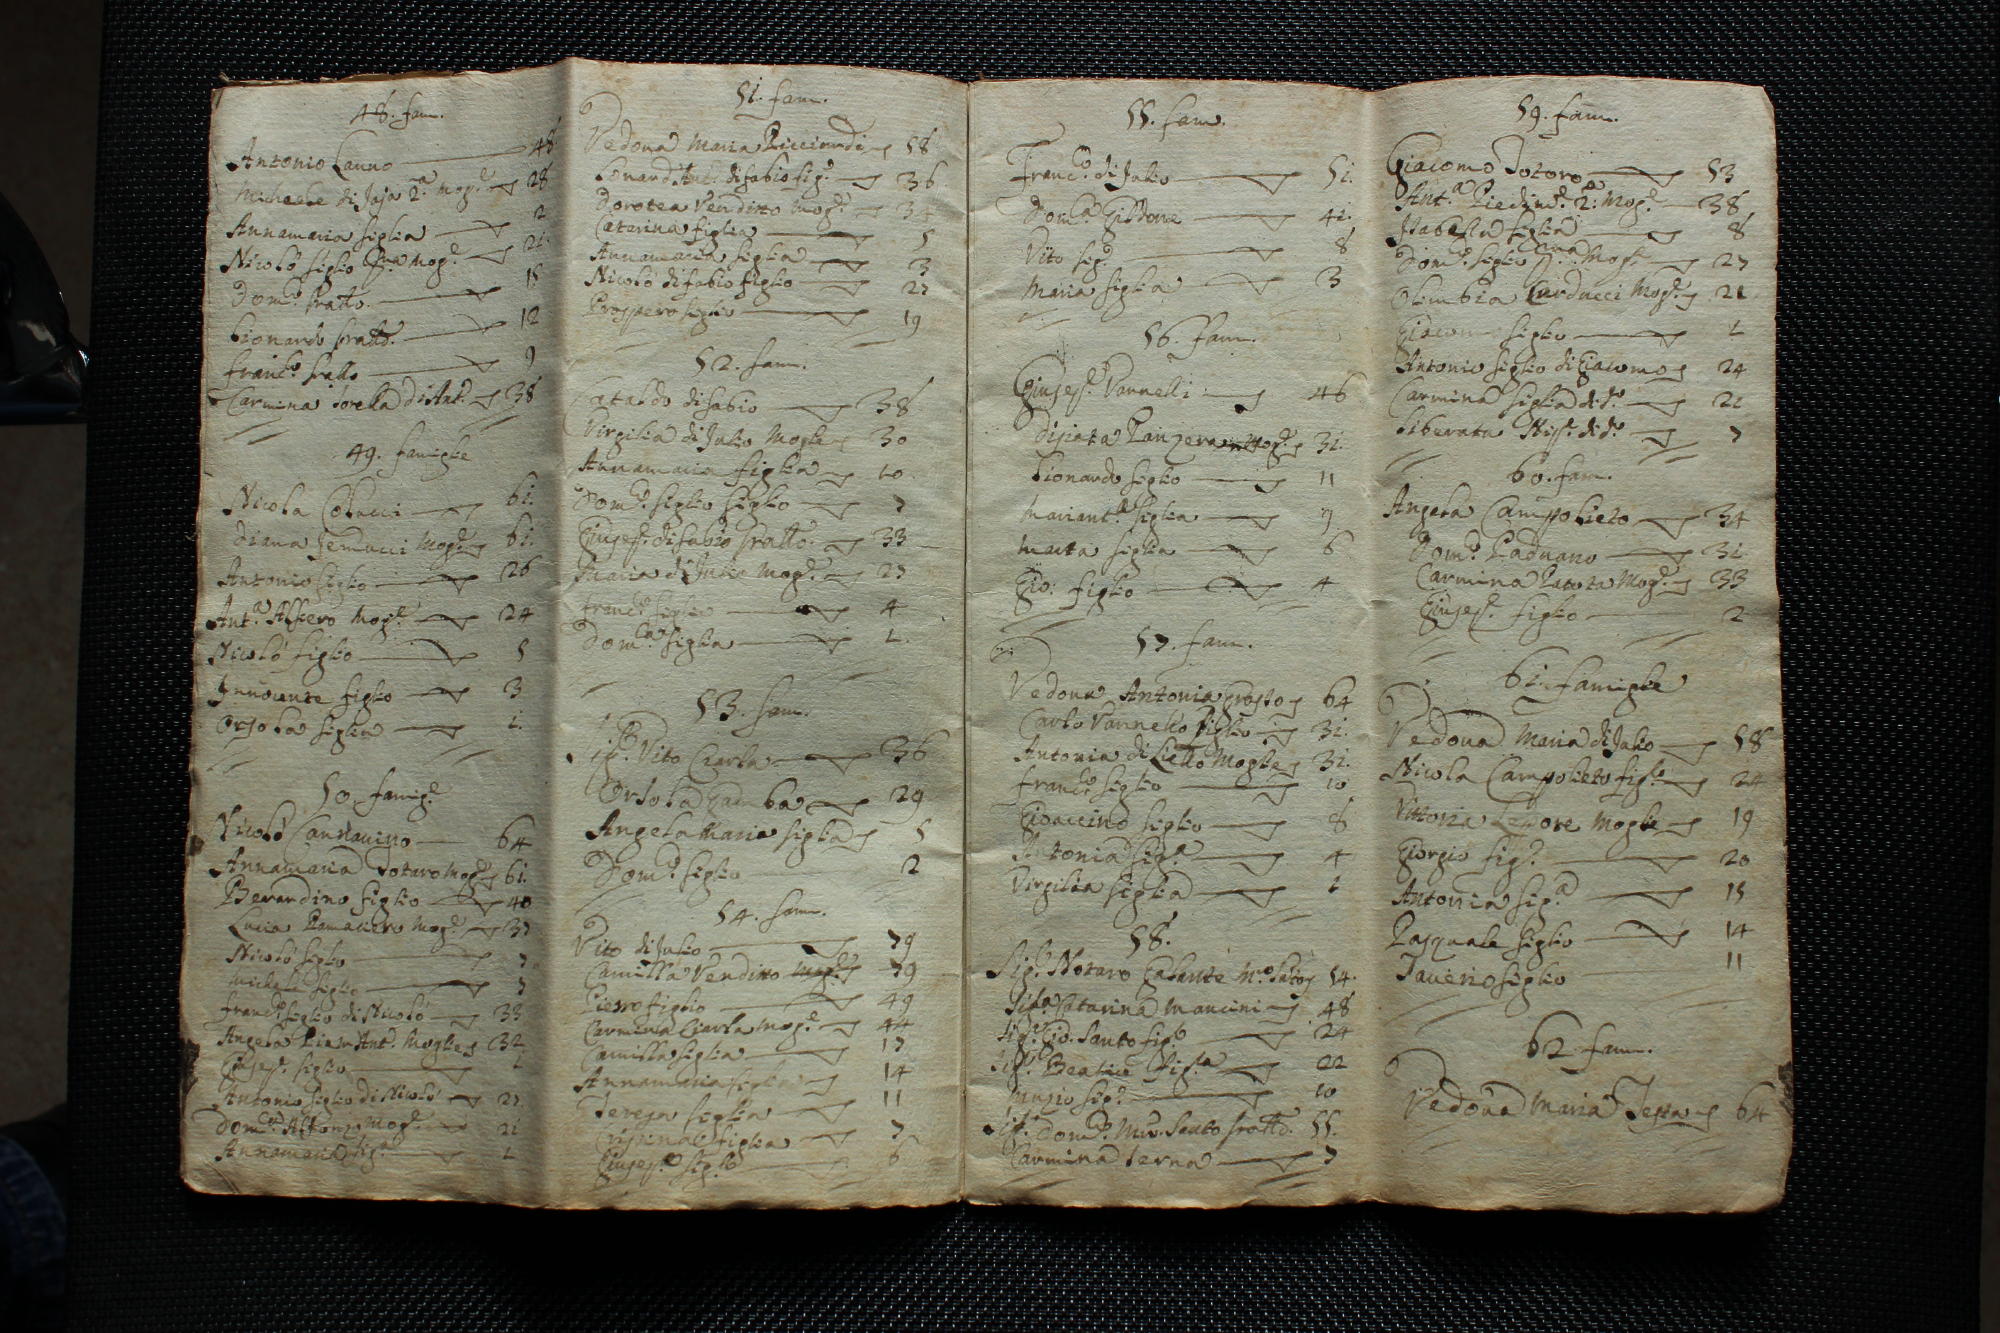 48. fam.
Antonio Lanno 48
Michaele di Jaja 2.a Mog.e 28
Annamaria figlia 2
Nicolò figlio p.ma Mog.e 21.
Dom.co fratto. 15
Lionardo fratto. 12
Franc.co fratto 9
Carmina sorella di Ant.o 38
49. famiglie
Nicola Colucci 61.
Diana Jemucci Mog.e 61.
Antonio figlio 26
Ant.a Alfiero Mog.e 24
Nicolò figlio 5
Innocente figlio 3
Orsola figlia 1.
50. famig.e
Nicolò 64
Annamaria Totaro Mog.e 61.
Berardino figlio 40
Lucia Mog.e 37
Nicolò figlio 7
Michele figlio 3
Franc.o figlio di Nicolò 33
Angela Mogle 32
Giusep.e figlio 1
Antonio figlio di Nicolò 27
Dom.ca Alfonzo Mog.e 21
Annamaria fig.a 1
51. fam.
Vedova Maria Ricciardi 58
Lonard'Ant.o difabio fig.o 36
Dorotea Venditto Mog.e 34
Caterina figlia 5
Annamaria figlia 3
Nicolò difabio figlio 27
Prospero figlio 19
52. fam.
Cataldo difabio 38
Virgilia di Julio Mogle 30
Annamaria figlia 10
Dom.co figlio figlio 7
Giusep.e difabio fratto. 33
Maria di Julio Mog.e 27
Franc.o figlio 4
Dom.ca figlia 1.
53. fam.
Vito Ciarla 36
Orsola Gamba 29
Angela Maria figlia 5
Dom.co figlio 2
54. fam.
Vito di Julio 79
Camilla Venditto Mog.e 79
Pietro figlio 49
Carmina Ciarla Mog.e 44
Camilla figlia 17
Annamaria figlia 14
Teresa figlia 11
Crispina figlia 7
Giusep.e figlo 6
55. fam.
Franc.co di Julio 51.
Dom.ca 41.
Vito fig.o 8
Maria figlia 3
56. fam.
Giusep.e Vannelli 46
Disiata Panzera Mog.e 31.
Lionardo figlio 11
Mariant.a figlia 9
Marta figlia 6
Gio: figlio 4
57. fam.
Vedova Antonia Grosso 64
Carlo Vannello figlio 31.
Antonia di Liello Mogle 31.
Franc.co figlio 10
Gioaccino figlio 8
Antonia fig.a 4
Virgilia figlia 1
58.
Sig.r Notaro Galante 54.
Sig.a Catarina Mancini 48
Sig.r Gio. Santo fig.o 24
Sig.a Beatice fig.a 22
Nunzio fig.o 10
Sig.r Dom.co Santo fratto. 55.
Carmina Serna 7
59. fam.
Giacomo Totoro 53
Ant.a 2.a Mog.e 38
Isabella figlia 8
Dom.co figlio p.ma Mog.e 27
Olimbia Carducci Mog.e 21
Giacomo figlio 1
Antonio figlio di Giacomo 24
Carmina figlia di d.o 21
Liberata Nip.e di d.o 7
60. fam.
Angela Campolieto 34
Dom.co Paduano 31
Carmina Mog.e 33
Giusep.e figlio 2
61. famiglie
Vedova Maria di Julio 58
Nicola Campolieto figlo 24
Vittoria Mogle 19
Giorgio fig.o 20
Antonia fig.a 15
Pasquale figlio 14
Saverio figlio 11
62. fam.
Vedova Maria Testa 64